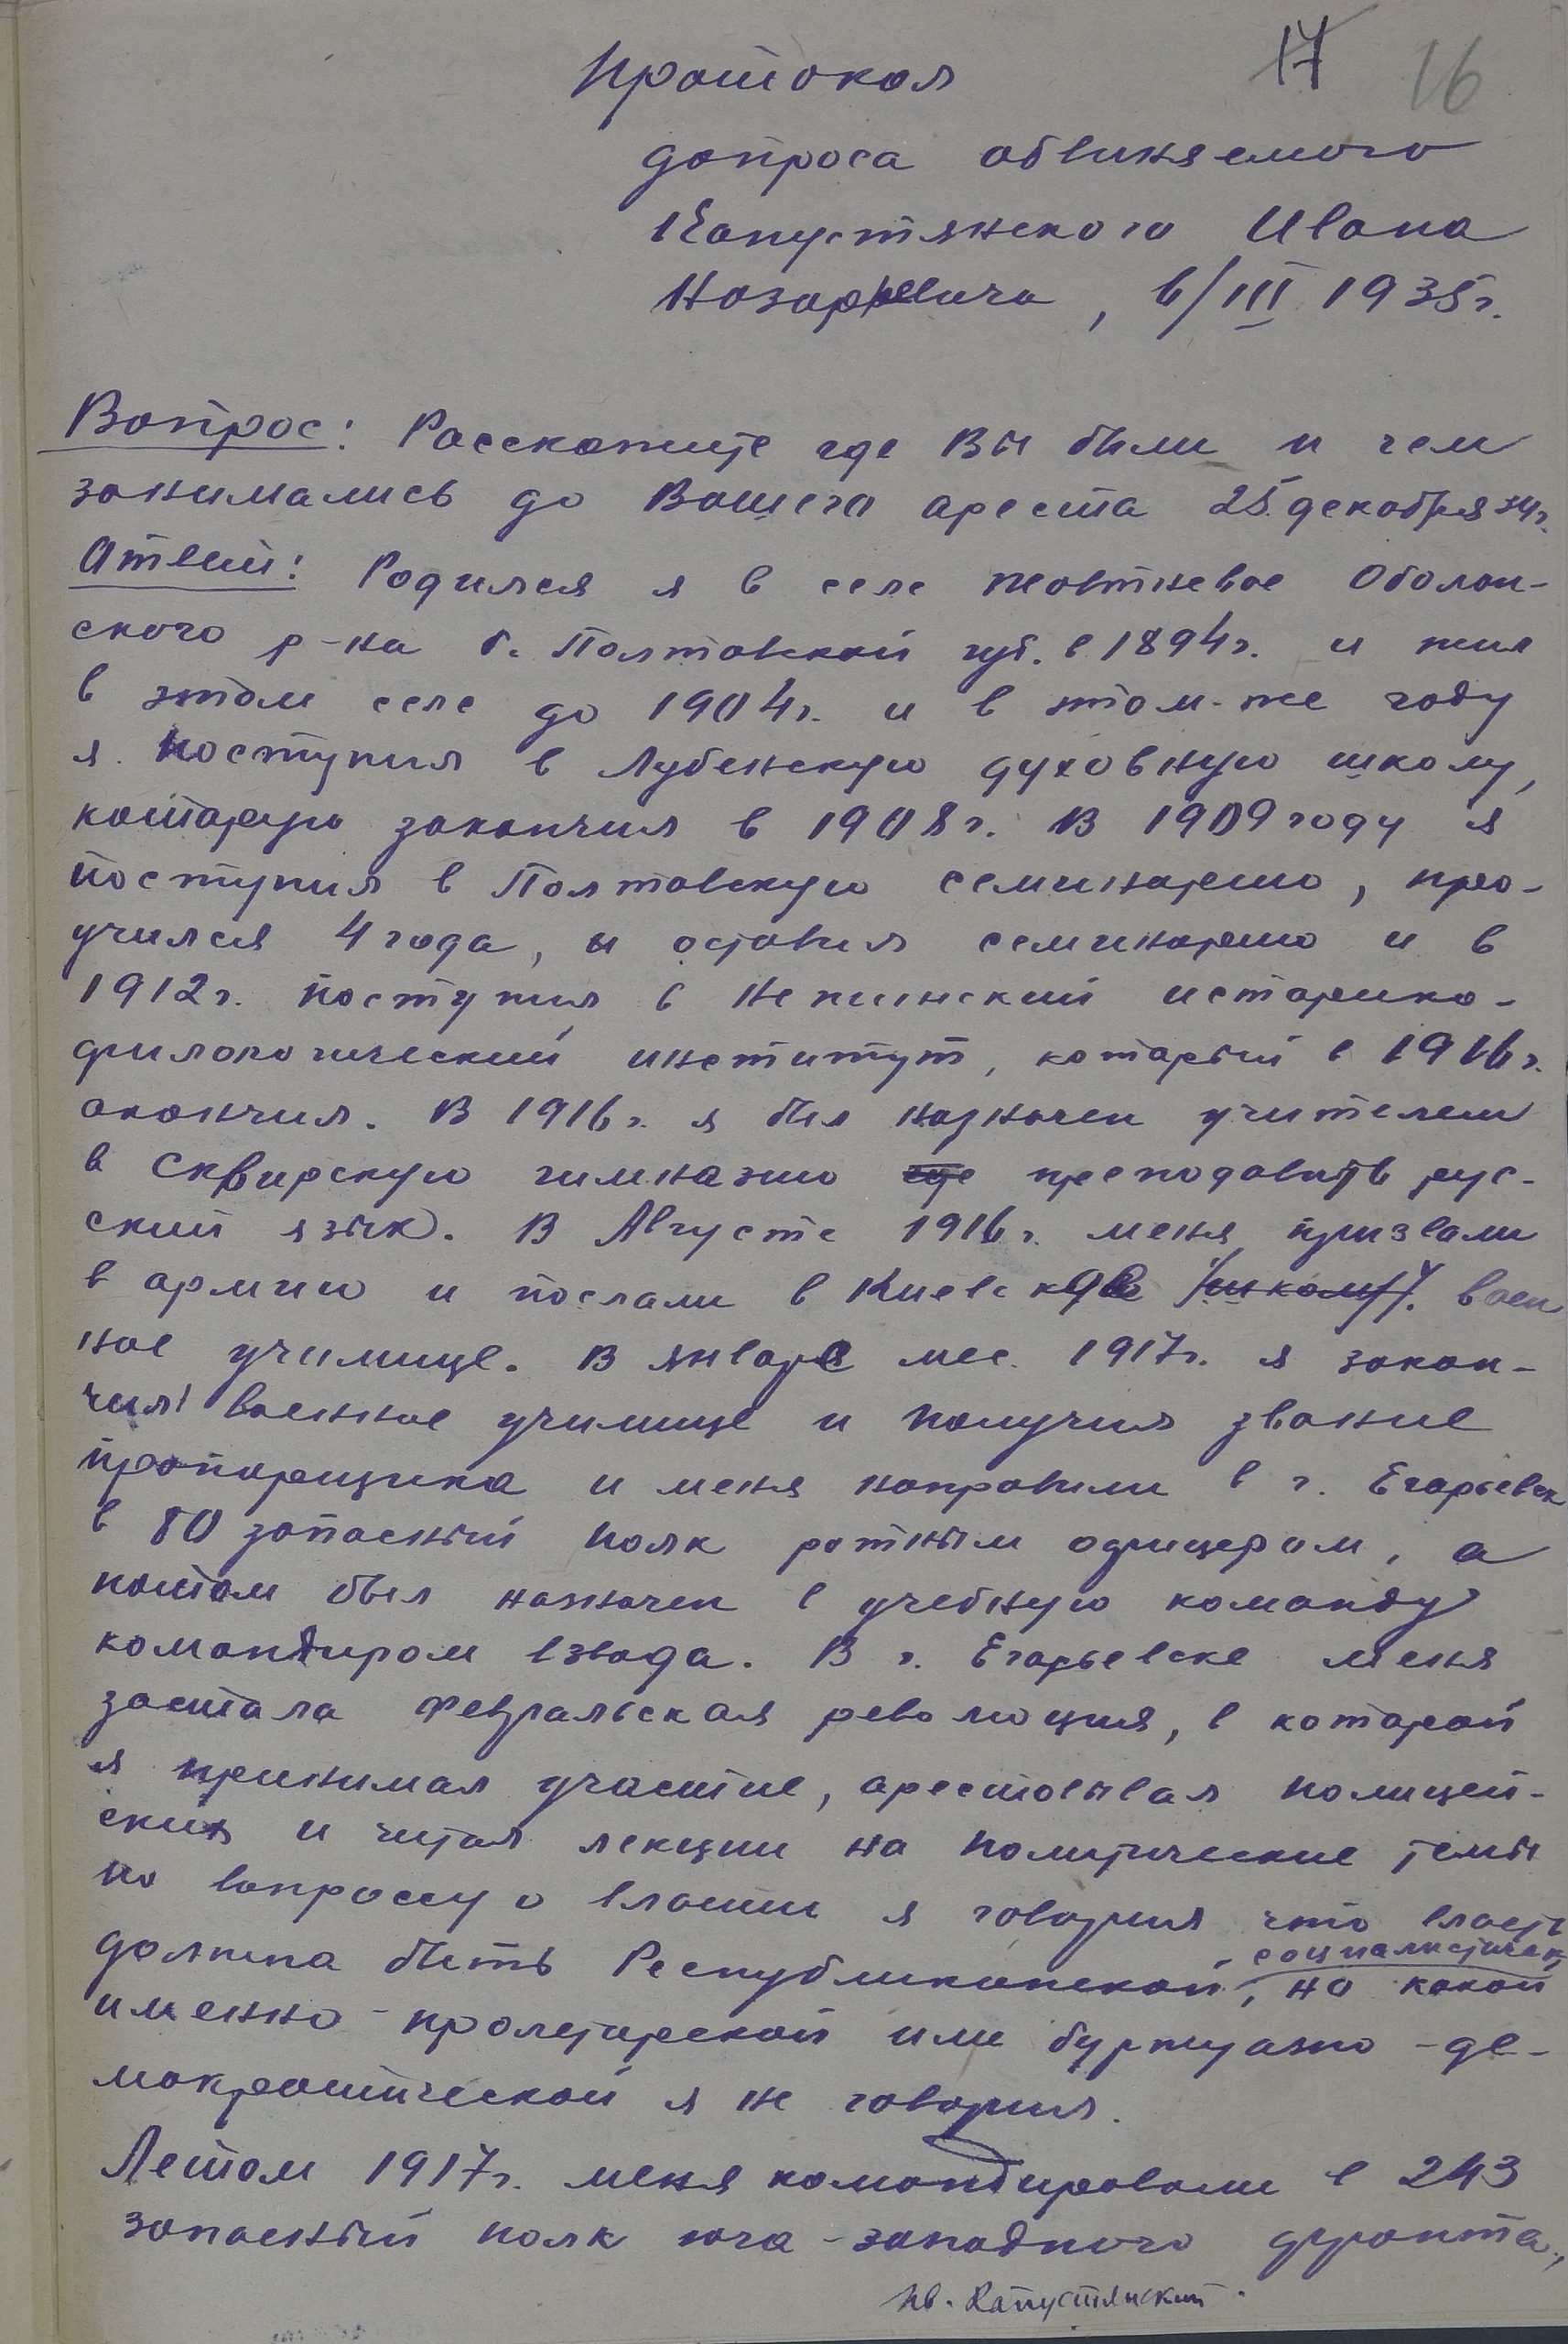 17 16
Протокол
допроса обвиняемого
Капустянского Ивана
Назарьевича, 6/III 1935г.
Вопрос: Расскажите где Вы были и чем
занимались до Вашего ареста 25 декабря 34г.
Ответ: Родился я в селе Жовтневое Оболон-
ского р-на б. Полтавской губ. в 1894г. и жил
в этом селе до 1904г. и в том-же году
я поступил в Лубенскую духовную школу,
которую закончил в 1908г. В 1909 году я
поступил в Полтавскую семинарию, про-
учился 4 года, и оставил семинарию и в
1912г. поступил в Нежинский историко-
филологический институт, который в 1916г.
окончил. В 1916г. я был назначен учителем
в Сквирскую гимназию где преподавать рус-
ский язык. В Августе 1916г. меня призвали
в армию и послали в Киевское /школу/. воен
ное училище. В январе мес. 1917г. я закон-
чил военное училище и получил звание
пропорщика и меня направили в г. Егорьевск
в 80 запасный полк ротным офицером, а
потом был назначен в учебную команду
командиром взвода. В г. Егорьевске меня
застала февральская революция, в которой
я принимал участие, арестовывал полицей-
ских и читал лекции на политические темы
по вопроссу о власти я говорил что власть
социалистическ,
должна быть Республиканской, но какой
именно - пролетарской или буржуазно-де-
мократической я не говорил.
Летом 1917г. меня командировали в 243
запасный полк юго-западного фронта,
Ив. Капустянский.